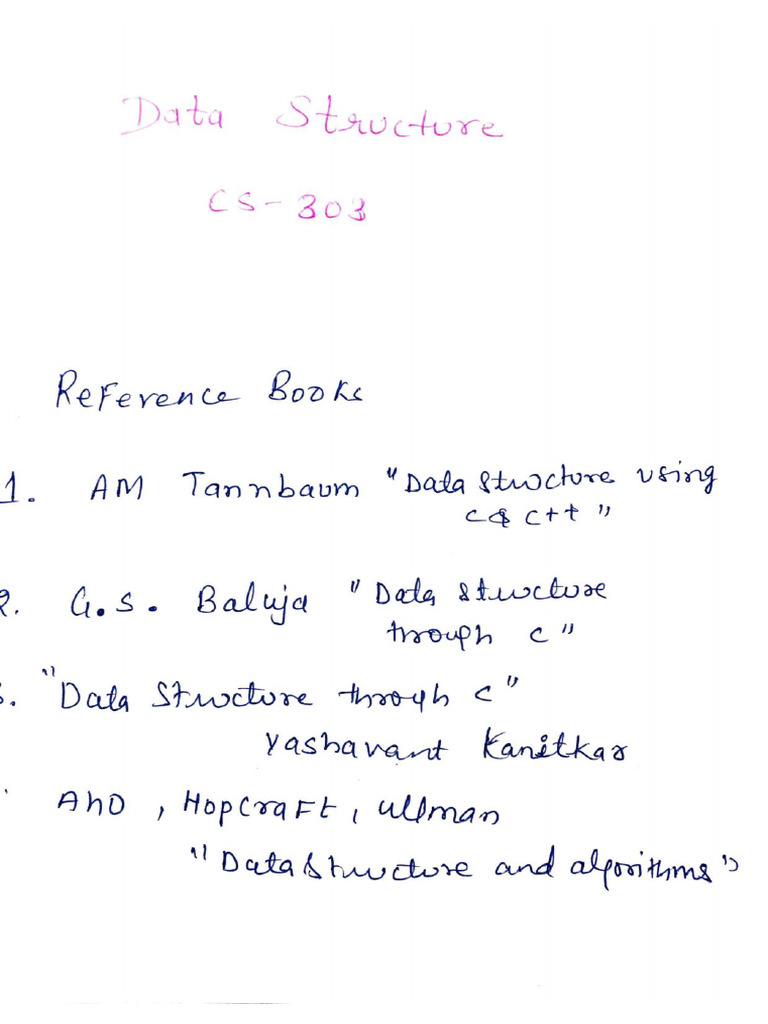 Data Structure
CS-303
Reference Books
1. AM Tannbaum "Data structure using
C & C++"
2. G.S. Baluja "Data structure
through C"
3. "Data Structure throygh C"
Yashavant Kanetkar
Aho, Hopcraft, Ullman
"Data Structure and algorithms"